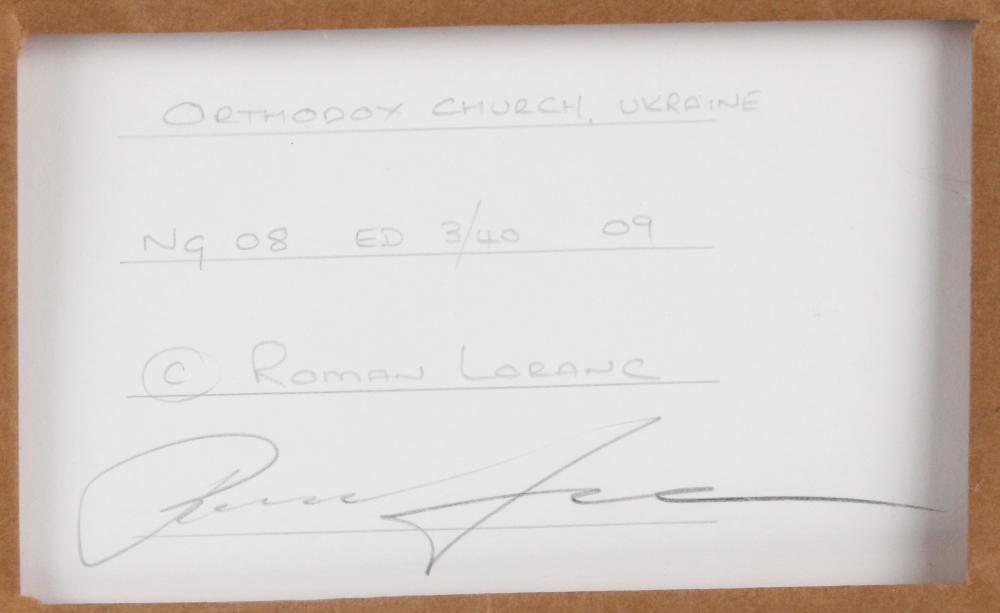 ORTHODOX CHURCH, UKRAINE
Ng 08 ED 3/40 09
© ROMAN LORANC